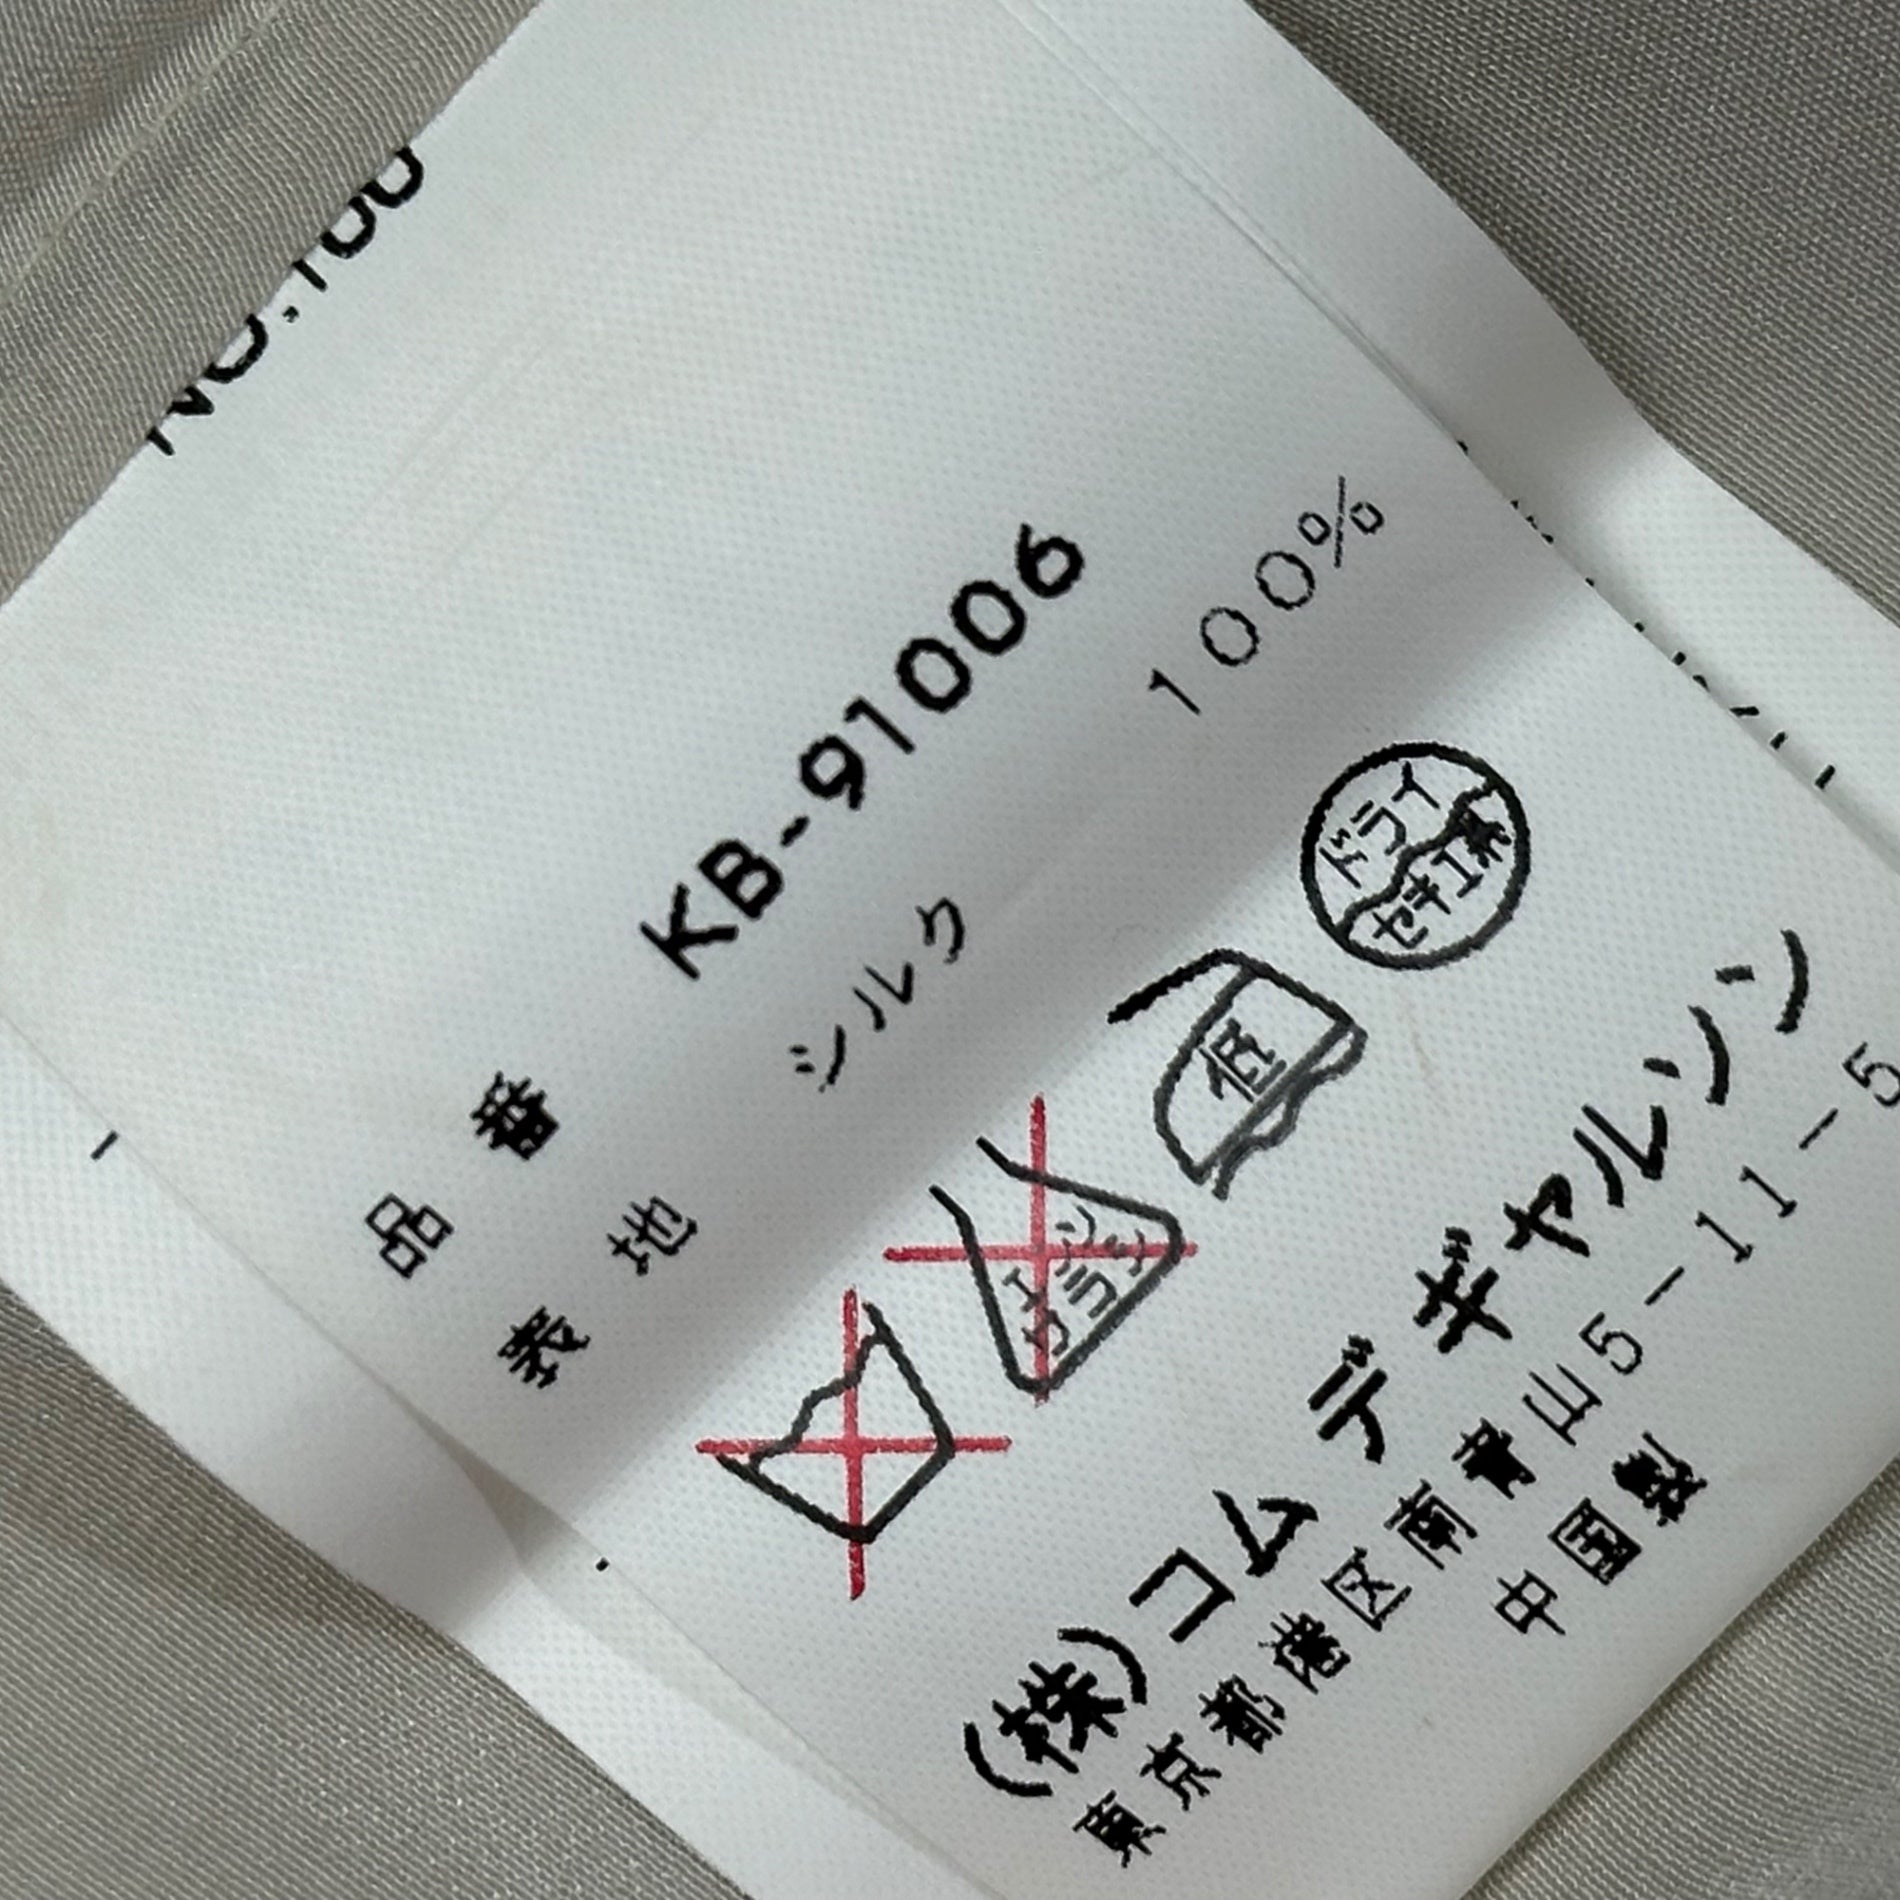 NO.100
品番 KB-91006
表地 シルク 100%
エンソ サラシ
低
ドライ
セキユ系
(株)コム デ ギャルソン
東京都港区南青山5-11-5
中国製